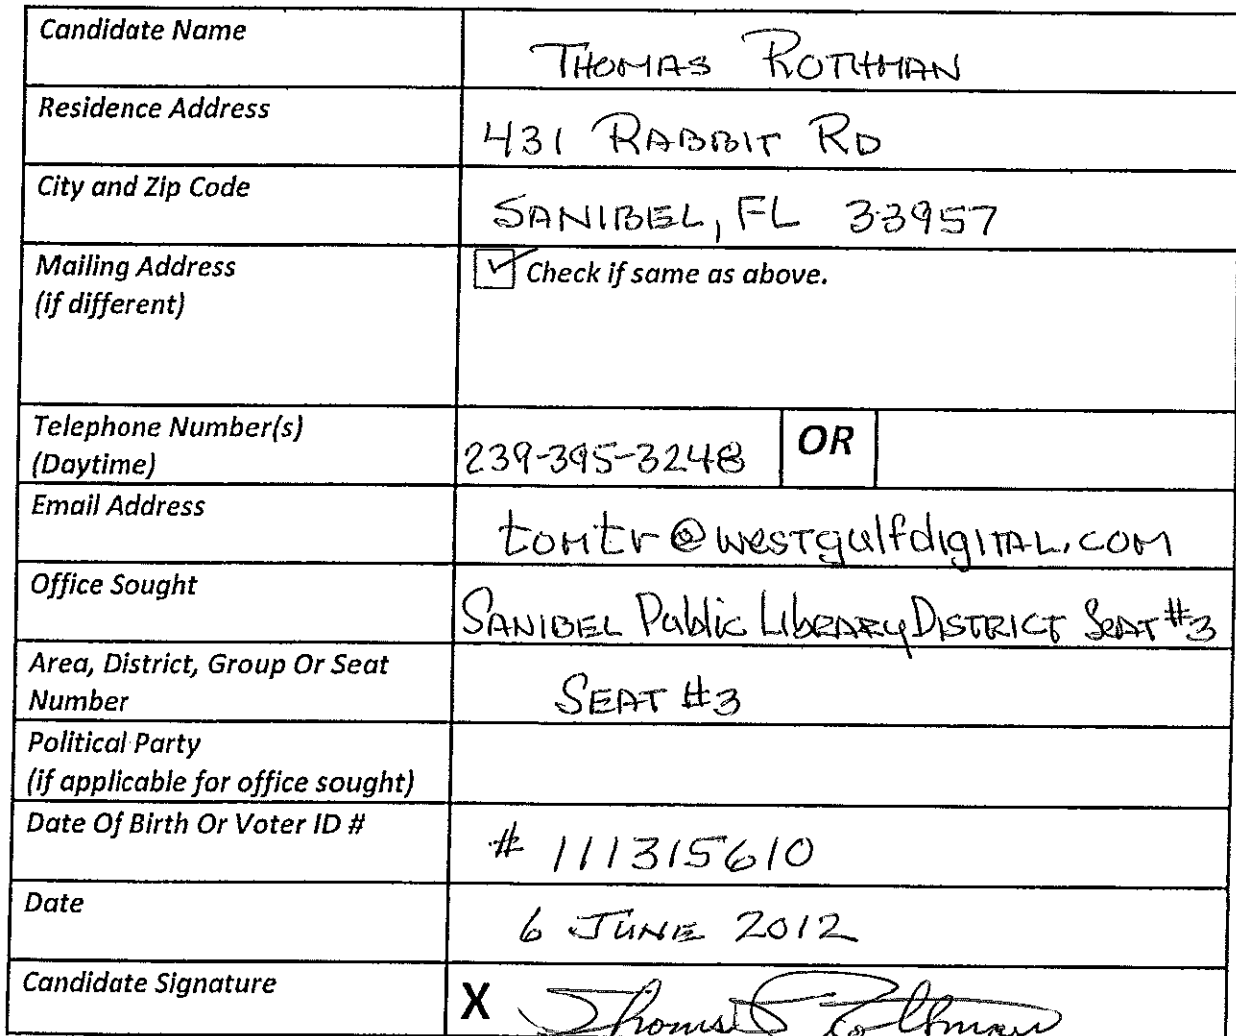 Candidate Name
THOMAS ROTHMAN
Residence Address
431 RABBIT RD
City and Zip Code
SANIBEL, FL 33957
Mailing Address
(if different)
Check if same as above.
Telephone Number(s)
(Daytime)
239-395-3248
OR
Email Address
tomtr@westgulfdigital.com
Office Sought
SANIBEL Public LIBRARY DISTRICT SEAT #3
Area, District, Group Or Seat
Number
SEAT #3
Political Party
(if applicable for office sought)
Date Of Birth Or Voter ID #
# 111315610
Date
6 JUNE 2012
Candidate Signature
X Thomas Rothman